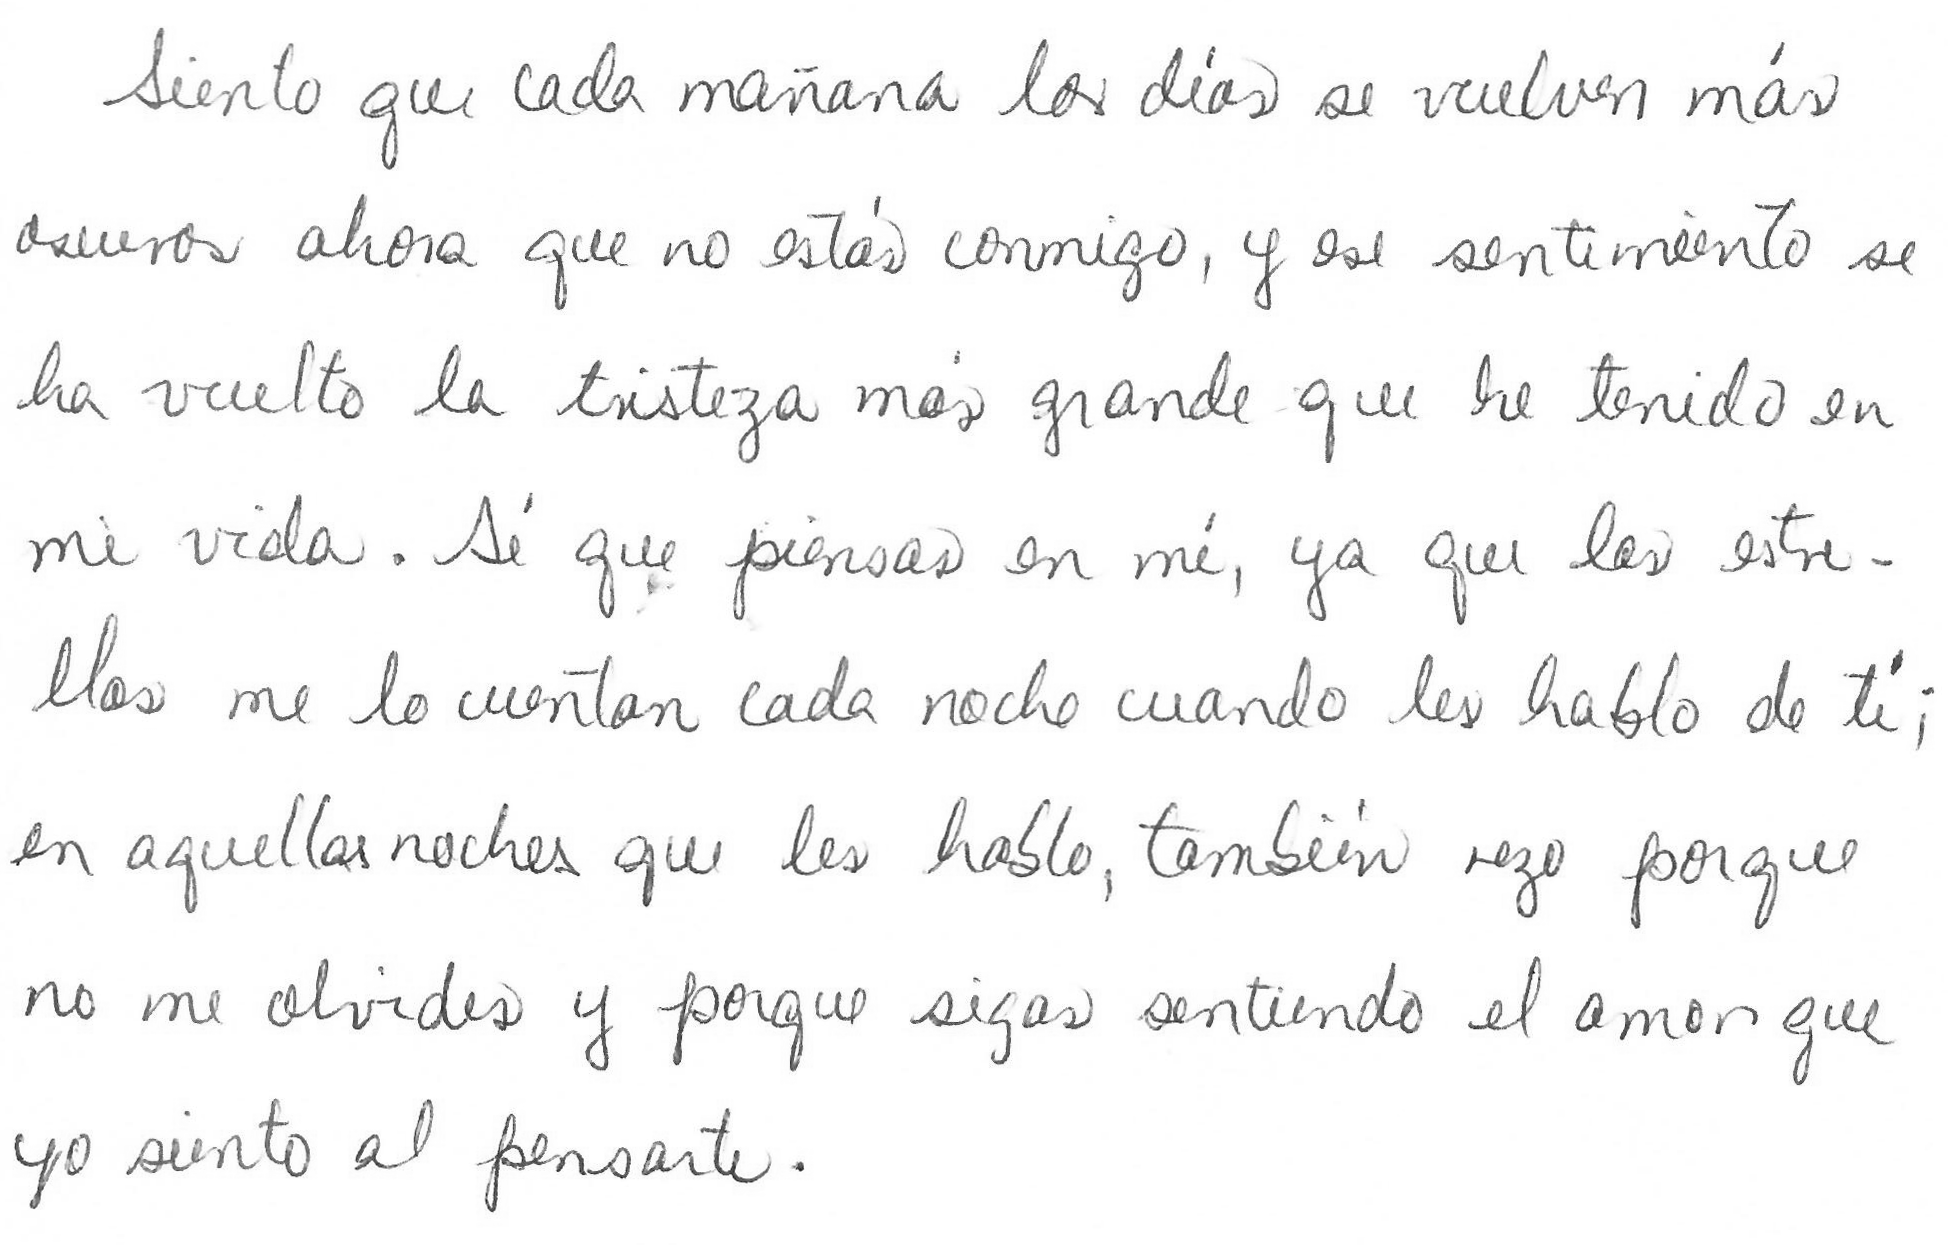 Siento que cada mañana los días se vuelven más
oscuros ahora que no estás conmigo, y ese sentimiento se
ha vuelto la tristeza más grande que he tenido en
mi vida. Sé que piensas en mí, ya que las estre-
llas me lo cuentan cada noche cuando les hablo de tí;
en aquellas noches que les hablo, también rezo porque
no me olvides y porque sigas sentiendo el amor que
yo siento al pensarte.